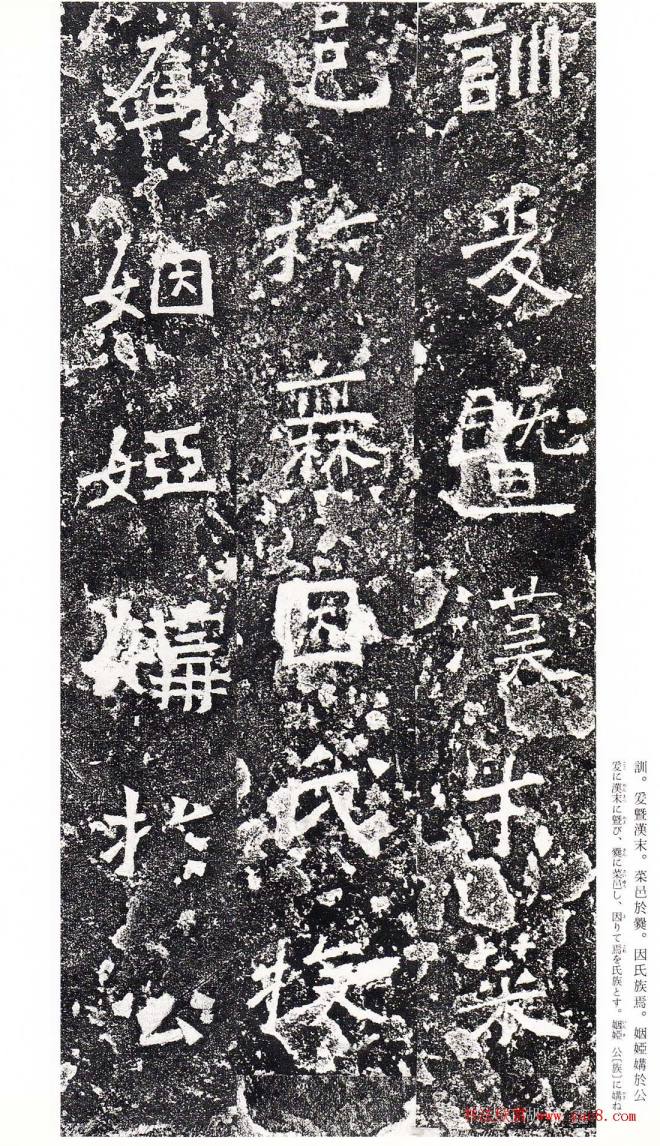 訓。爰曁漢末。菜邑於爨。因氏族焉。姻婭媾於公
爰に漢末に曁び、爨に菜邑し、因りて焉を氏族とす。姻婭 公〔族〕に媾ね
訓爰暨漢末菜
邑於爨因氏族
焉姻婭媾於公
书法欣赏 www.yac8.com